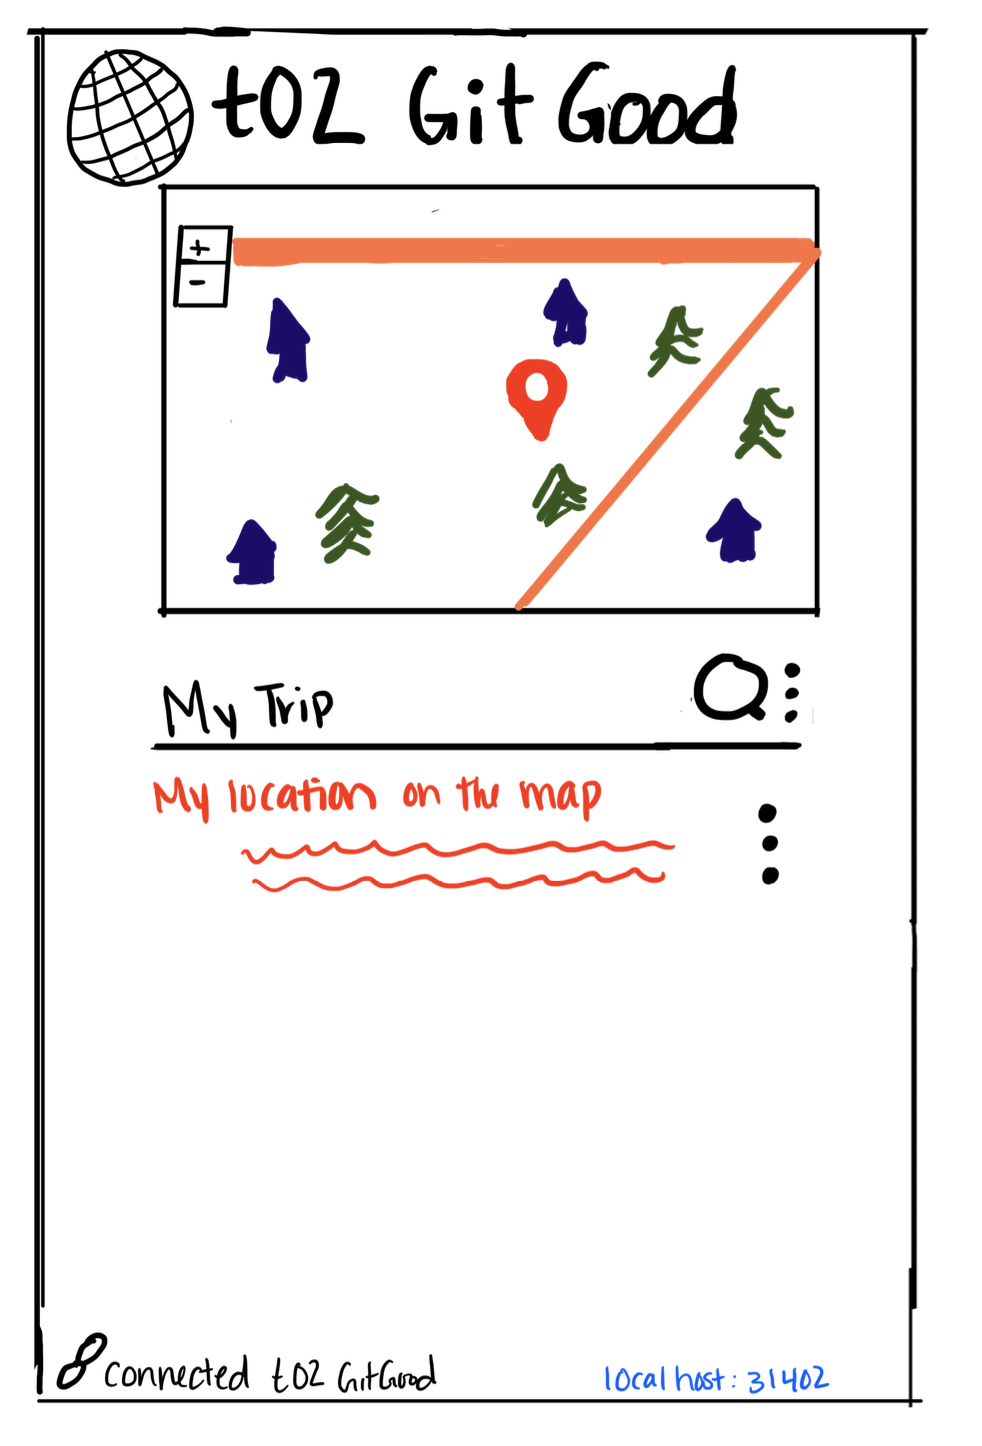 t02 Git Good
+
-
My Trip
My location on the map
connected t02 GitGood
localhost: 31402